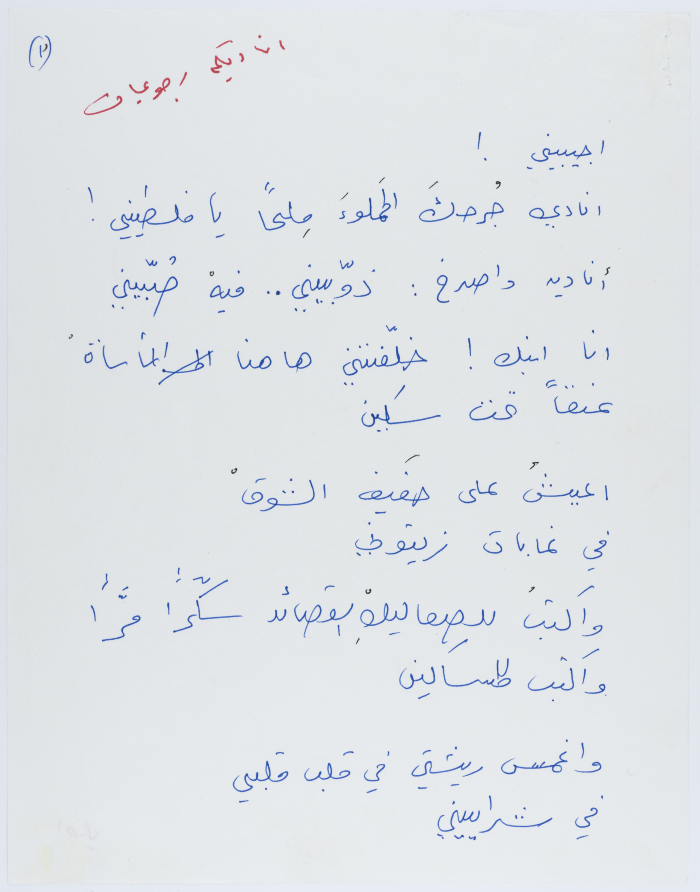 (٢)
اناديكم
اجيبيني !
انادي جُرحكَ المَملوءَ مِلحاً يا فلسطيني !
أناديه واصرخ : ذوّبيني .. فيهْ صُبّيني
انا ابنك ! خلّفتني هاهنا المأساةُ
عنقاً تحت سكين
اعيشُ على حَفيف الشوقْ
في غابات زيتوني
وَاكتبُ للصعاليكْ القصائد سكّراً مُرّاً
وَاكتب للمساكين
واغمس ريشتي في قلب قلبي
في شراييني